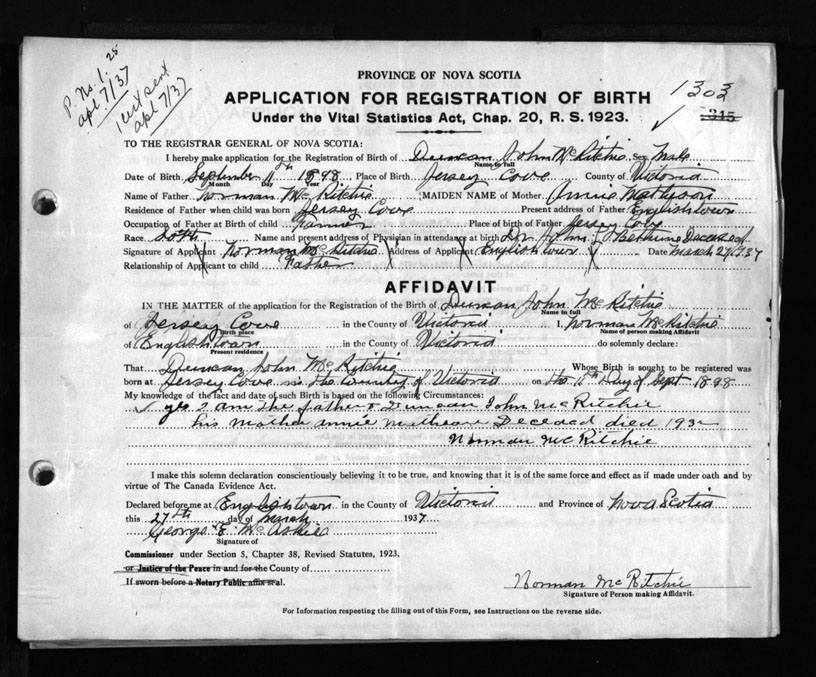 P. No. 1. 25
apl 7/37
1 cert sent
apl 7/37
PROVINCE OF NOVA SCOTIA
1303
APPLICATION FOR REGISTRATION OF BIRTH
315
Under the Vital Statistics Act, Chap. 20, R. S. 1923.
TO THE REGISTRAR GENERAL OF NOVA SCOTIA:
I hereby make application for the Registration of Birth of Duncan John McRitchie Sex Male
Name in full
Date of Birth September 11th 1898 Place of Birth Jersey Cove County of Victoria
Month Day Year
Name of Father Norman McRitchie MAIDEN NAME of Mother Annie
Residence of Father when child was born Jersey Cove Present address of Father Englishtown
Occupation of Father at Birth of child Farmer Place of birth of Father Jersey Cove
Race Scoth Name and present address of Physician in attendance at birth Dr John Bethune Deceased
Signature of Applicant Norman McRitchie Address of Applicant Englishtown Date March 27 1937
Relationship of Applicant to child Father
AFFIDAVIT
IN THE MATTER of the application for the Registration of the Birth of Duncan John McRitchie
Name in full
of Jersey Cove in the County of Victoria I, Norman McRitchie
Birth place Name of person making Affidavit
of Englishtown in the County of Victoria do solemnly declare:
Present residence
That Duncan John McRitchie Whose Birth is sought to be registered was
born at Jersey Cove in the County of Victoria on the 11th Day of Sept 1898
My knowledge of the fact and date of such Birth is based on the following Circumstances:
yes I am the father of Duncan John McRitchie
his mother Annie Deceased died 193
Norman McRitchie
I make this solemn declaration conscientiously believing it to be true, and knowing that it is of the same force and effect as if made under oath and by
virtue of The Canada Evidence Act.
Declared before me at Englishtown in the County of Victoria and Province of Nova Scotia
this 27th day of March 1937
George E McAskill
Signature of
Commissioner under Section 5, Chapter 38, Revised Statutes, 1923,
or Justice of the Peace in and for the County of
If sworn before a Notary Public affix seal.
Norman McRitchie
Signature of Person making Affidavit.
For Information respecting the filling out of this Form, see Instructions on the reverse side.